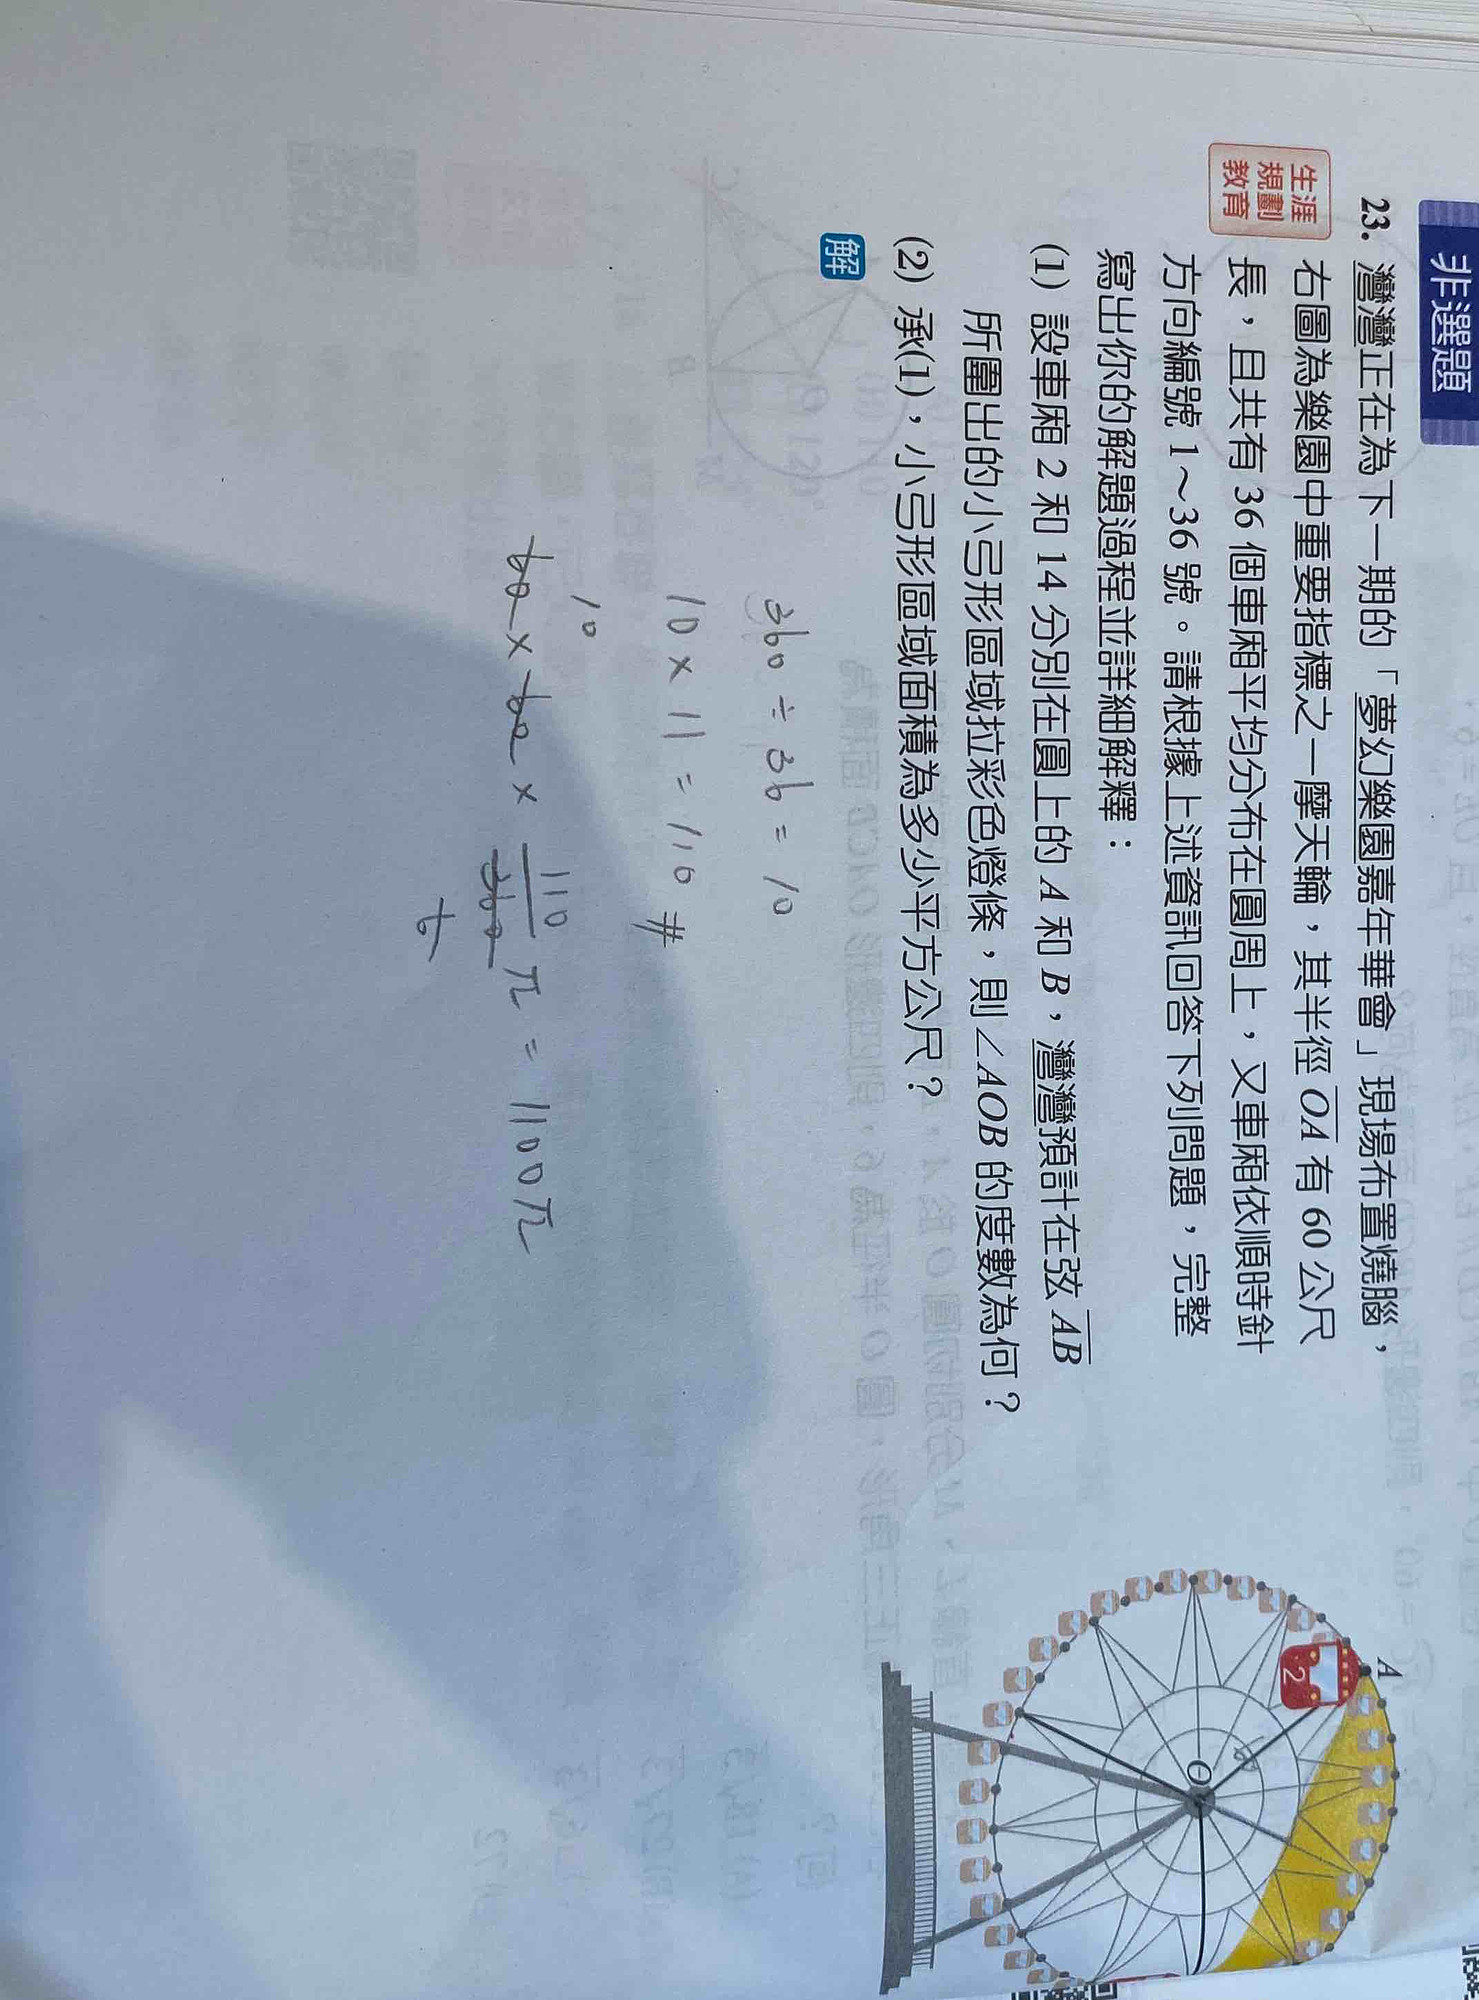 非選題
23. 灣灣正在為下一期的「夢幻樂園嘉年華會」現場布置燒腦，
生涯
規劃
教育
右圖為樂園中重要指標之一摩天輪，其半徑 OA 有 60 公尺
長，且共有 36 個車廂平均分布在圓周上，又車廂依順時針
方向編號 1～36 號。請根據上述資訊回答下列問題，完整
寫出你的解題過程並詳細解釋：
(1) 設車廂 2 和 14 分別在圓上的 A 和 B，灣灣預計在弦 AB
所圍出的小弓形區域拉彩色燈條，則 ∠AOB 的度數為何？
(2) 承(1)，小弓形區域面積為多少平方公尺？
解
A
2
O
360 ÷ 36 = 10
10 × 11 = 110 #
10
60 × 60 × 110/360 π = 1100π
6